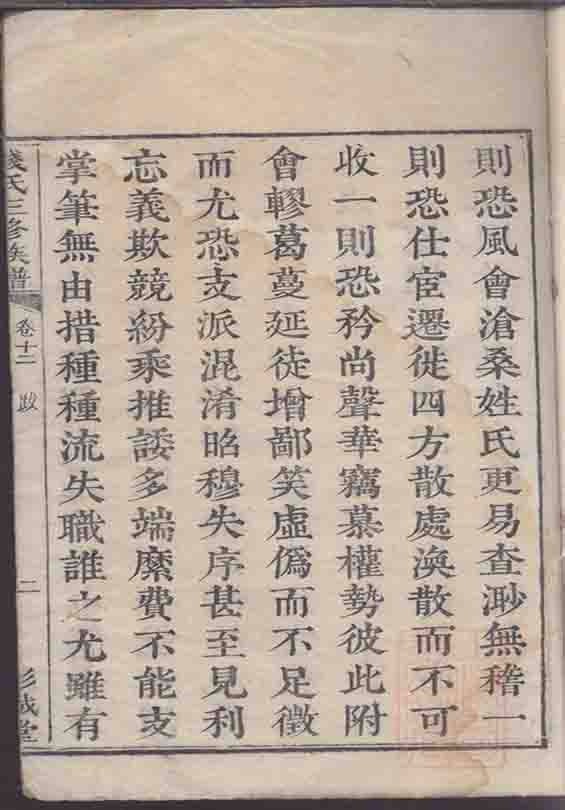 則恐風會滄桑姓氏更易查渺無稽一
則恐仕宦遷徙四方散處渙散而不可
收一則恐矜尚聲華竊慕權勢彼此附
會轇葛蔓延徒增鄙笑虛僞而不足徵
而尤恐支派混淆昭穆失序甚至見利
忘義欺競紛乘推諉多端縻費不能支
掌筆無由措種種流失職誰之尤雖有
錢氏三修族譜 卷十二 跋 二 彭城堂